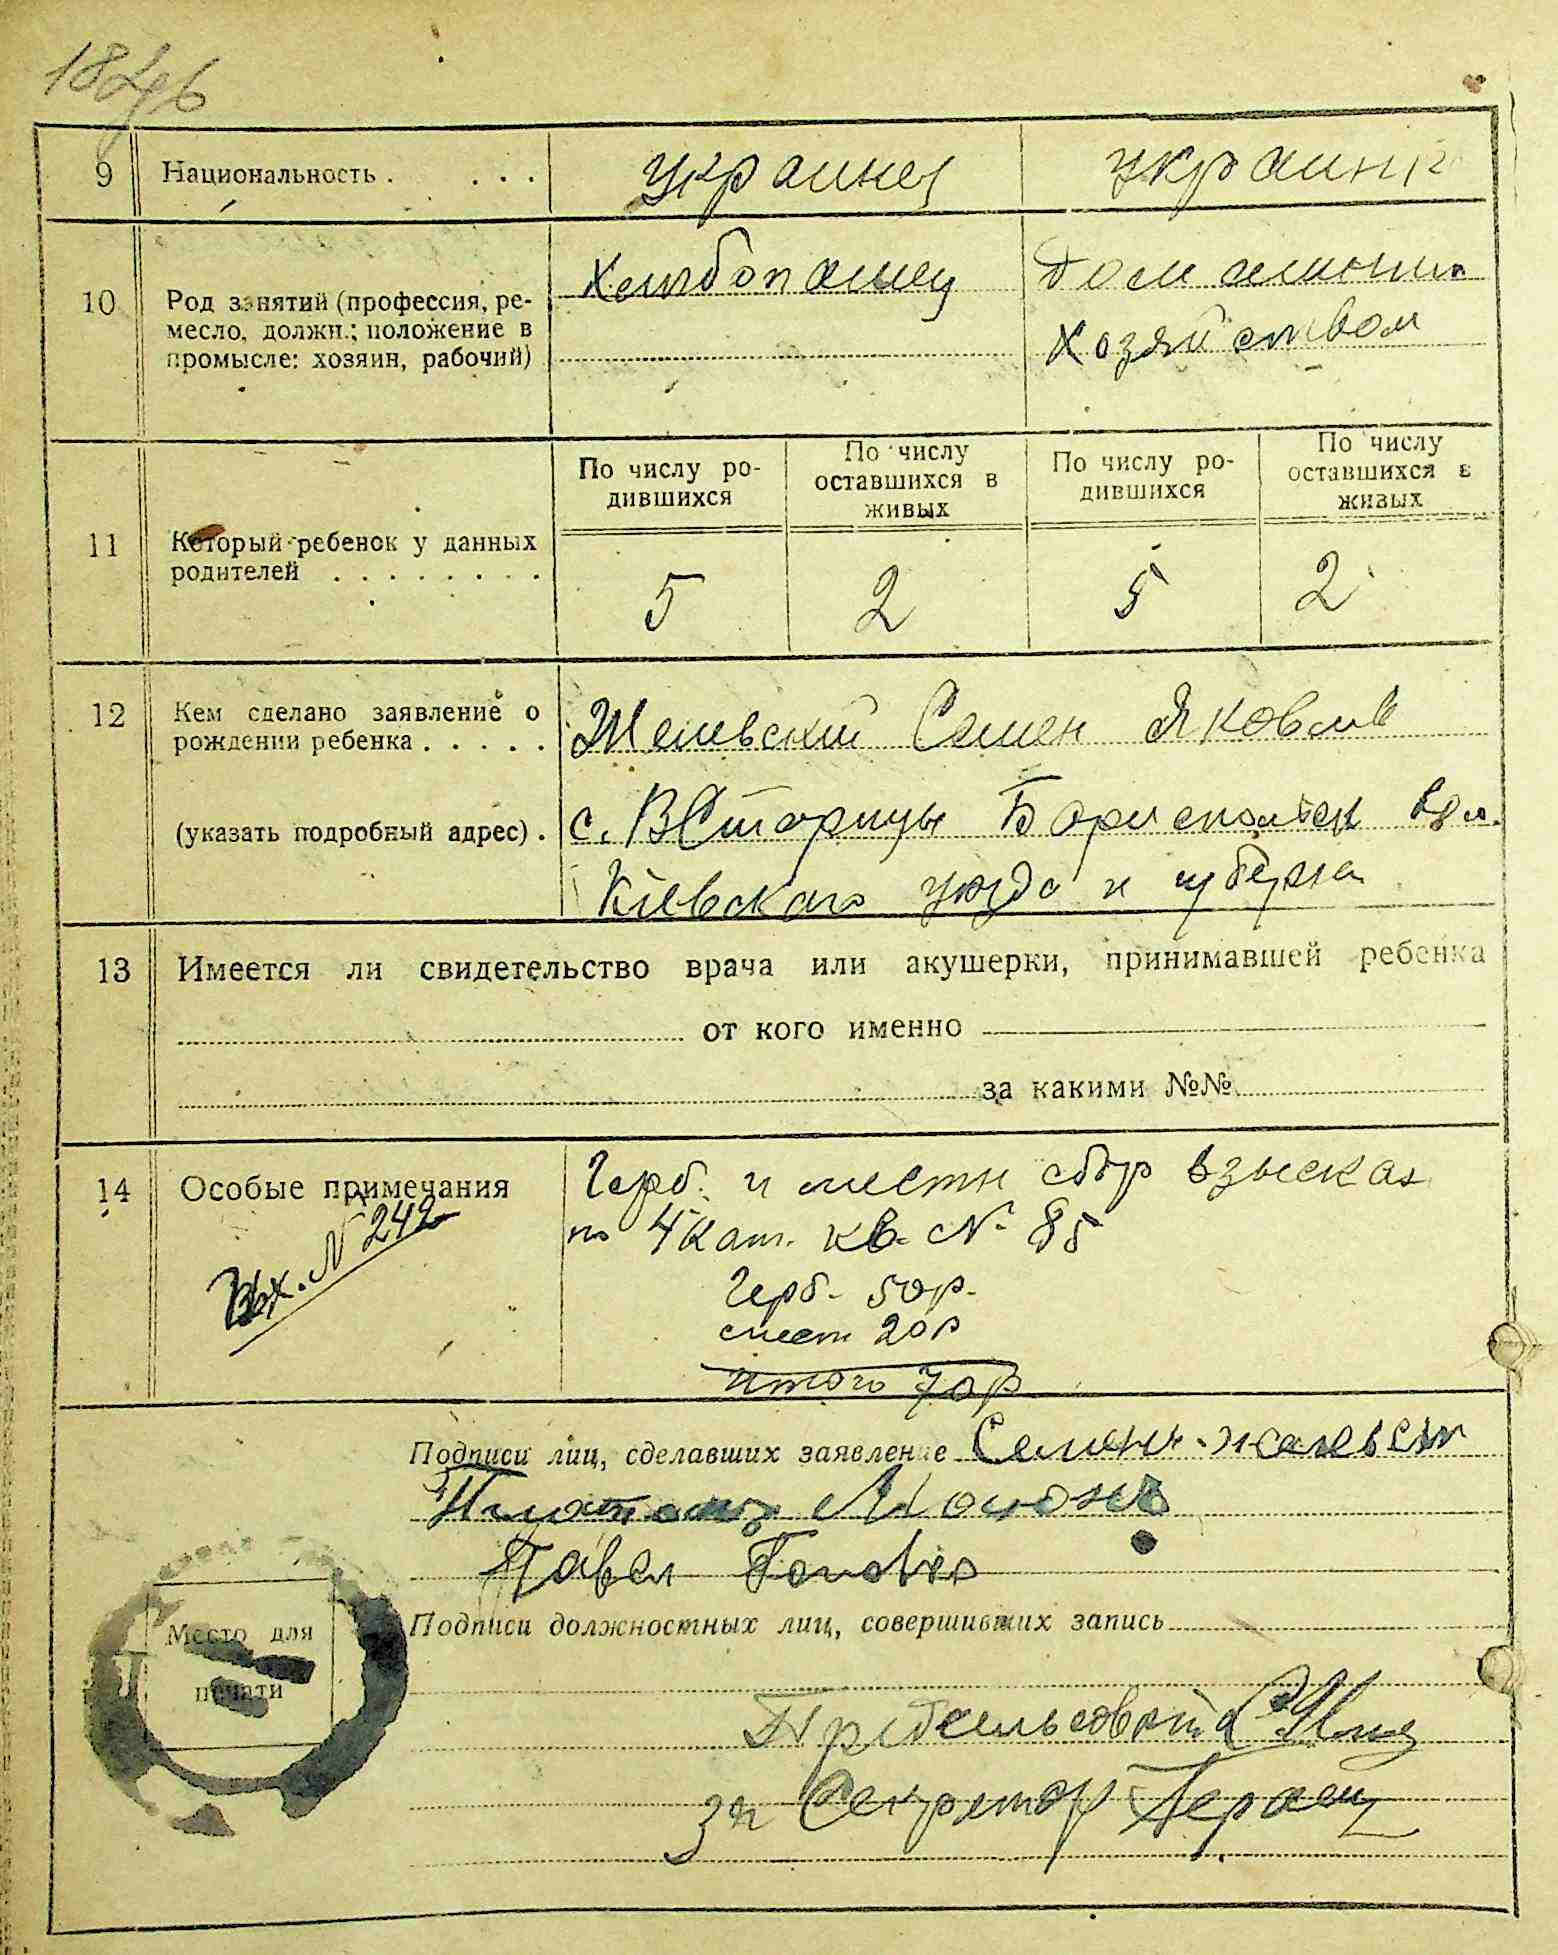 9 Национальность . . . . украинец украинк
10 Род занятий (профессия, ре-
месло, должн.; положение в
промысле: хозяин, рабочий)
Хлебопашец
Домашним
хозяйством
11 Который ребенок у данных
родителей . . . . . . . .
По числу ро-
дившихся
По числу
оставшихся в
живых
По числу ро-
дившихся
По числу
оставшихся в
живых
5 2 5 2
12 Кем сделано заявление о
рождении ребенка . . . . .
(указать подробный адрес) .
Семен Яковлев
с. Бориспольск вол.
Кіевского уезда и губерн
13 Имеется ли свидетельство врача или акушерки, принимавшей ребенка
от кого именно
за какими №№
14 Особые примечания
Вх. N 242
Герб. и местн сбор взыскан
по 4 кат. кв. N 85
Герб. 50р.
мест 20р
итого 70р
Подписи лиц, сделавших заявление Семен
Платон
Павел
Подписи должностных лиц, совершивших запись
Место для
печати
Пред сельсовета
за Секретар